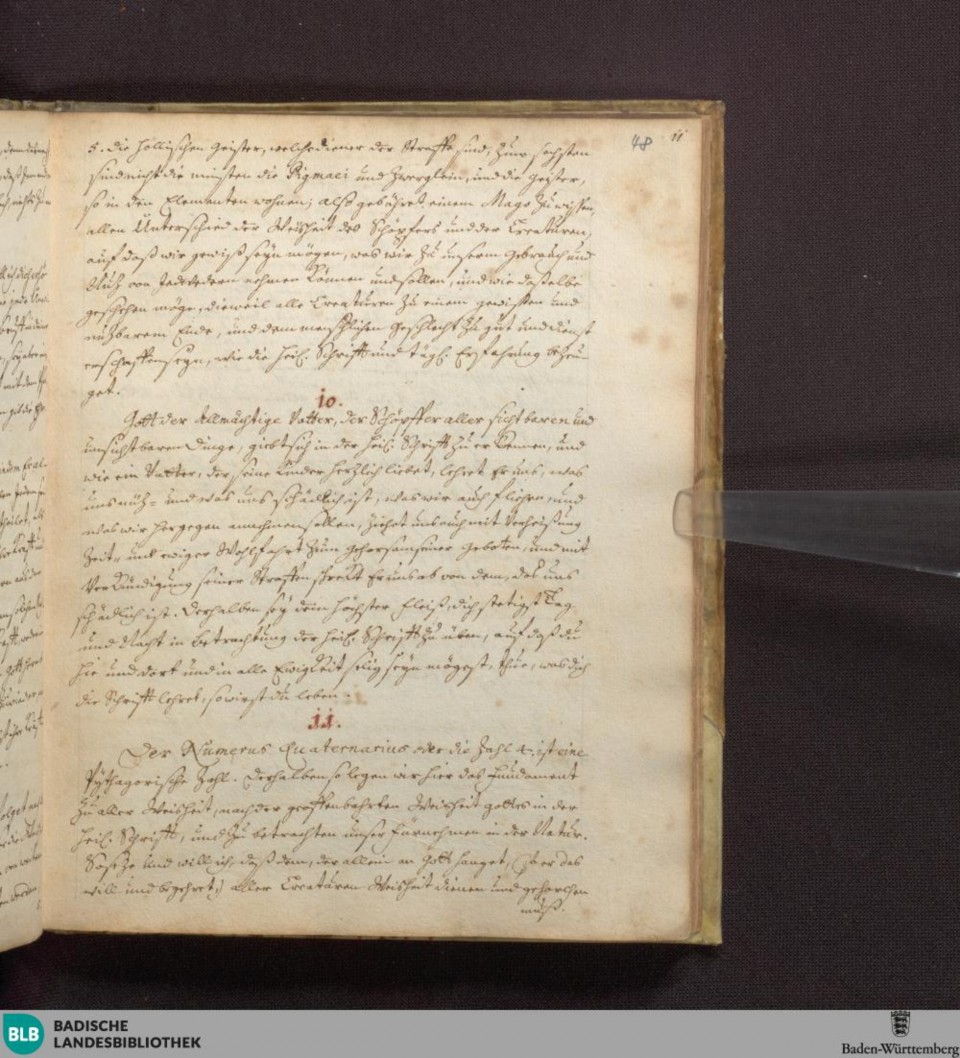 48 11
5. die höllischen Geister, welche diener der Straffe sind, zum sechsten
sind nicht die minsten die Pigmaei und Zwerglein, und die Geister,
so in den Elementen wohnen; also gebühret einem Mago zu wissen,
allen Unterschied der Weisheit des Schöpfers und der Creaturen,
auf daß wir gewiß seyn mögen, was wir zu unserm Gebrauch und
Nutz von Jedwedern nehmen können und sollen, und wie dasselbe
geschehen möge, dieweil alle Creaturen zu einem gewissen und
nutzbarem Ende, und dem menschlichen Geschlecht zu gut und dienst
erschaffen seyn, wie die heil. Schrifft und tägl. Erfahrung bezeu-
get.
10.
Gott der Allmächtige Vatter, der Schöpffer aller sichtbaren und
unsichtbaren Dinge, giebt sich in der heil. Schrifft zu erkennen, und
wie ein Vatter, der seine Kinder herzlich liebet, lehret Er uns, was
uns nütz- und was uns schädlich ist, was wir auch fliehen, und
was wir hergegen annehmen sollen, ziehet uns auch mit Verheißung
Zeit- und ewiger Wohlfahrt zum Gehorsam seiner Geboten, und mit
Verkündigung seiner Straffen schrekt Er uns ab von dem, das uns
schädlich ist. Derhalben sey dein höchster Fleiß, dich stetigst Tag
und Nacht in Betrachtung der heil. Schrifft zu üben, auf daß du
hie und dort und in alle Ewigkeit selig seyn mögest, thue, was dich
die Schrifft lehret, so wirst du leben.
11.
Der Numerus Quaternarius oder die Zahl 4. ist eine
Pythagorische Zahl. Derhalben so legen wir hier das Fundament
zu aller Weisheit, nach der geoffenbahrten Weisheit Gottes in der
heil. Schrifft, und zu betrachten unser Fürnehmen in der Natur.
Setze und will ich, daß dem, der allein an Gott hanget, (
will und begehret;) aller Creaturen Weisheit dienen und gehorchen
muß.
BLB BADISCHE
LANDESBIBLIOTHEK
Baden-Württemberg